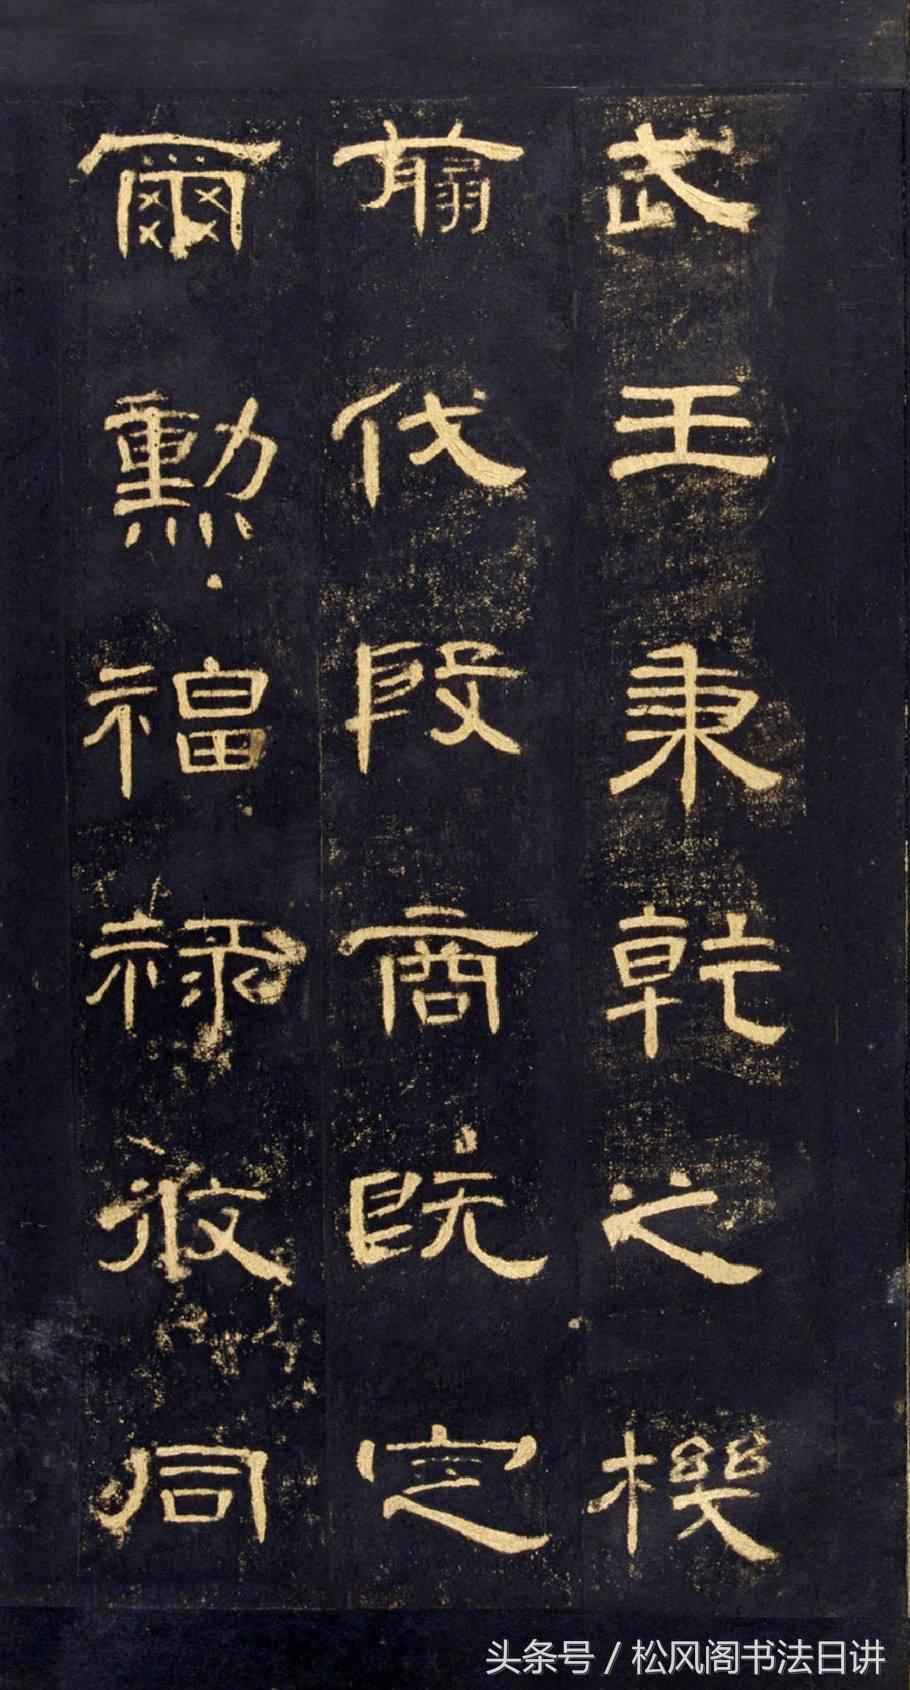 武王秉乾之機
翦伐殷商既定
爾勳福祿攸同
头条号 / 松风阁书法日讲